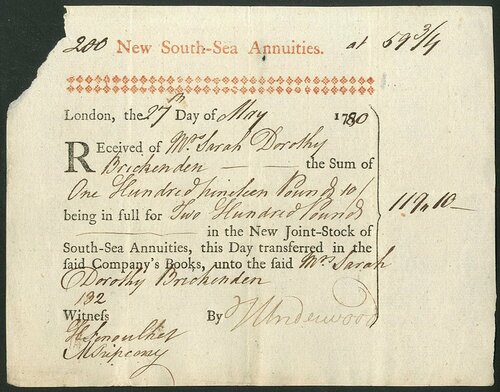 200 New South-Sea Annuities. at 59 3/4
London, the 27th Day of May 1780
Received of Mrs Sarah Dorothy
Brickenden the Sum of
One Hundred nineteen Pounds 10/
being in full for Two Hundred Pounds 119,,10
in the New Joint-Stock of
South-Sea Annuities, this Day transferred in the
said Company's Books, unto the said Mrs Sarah
Dorothy Brickenden
132
Witness By Underwood